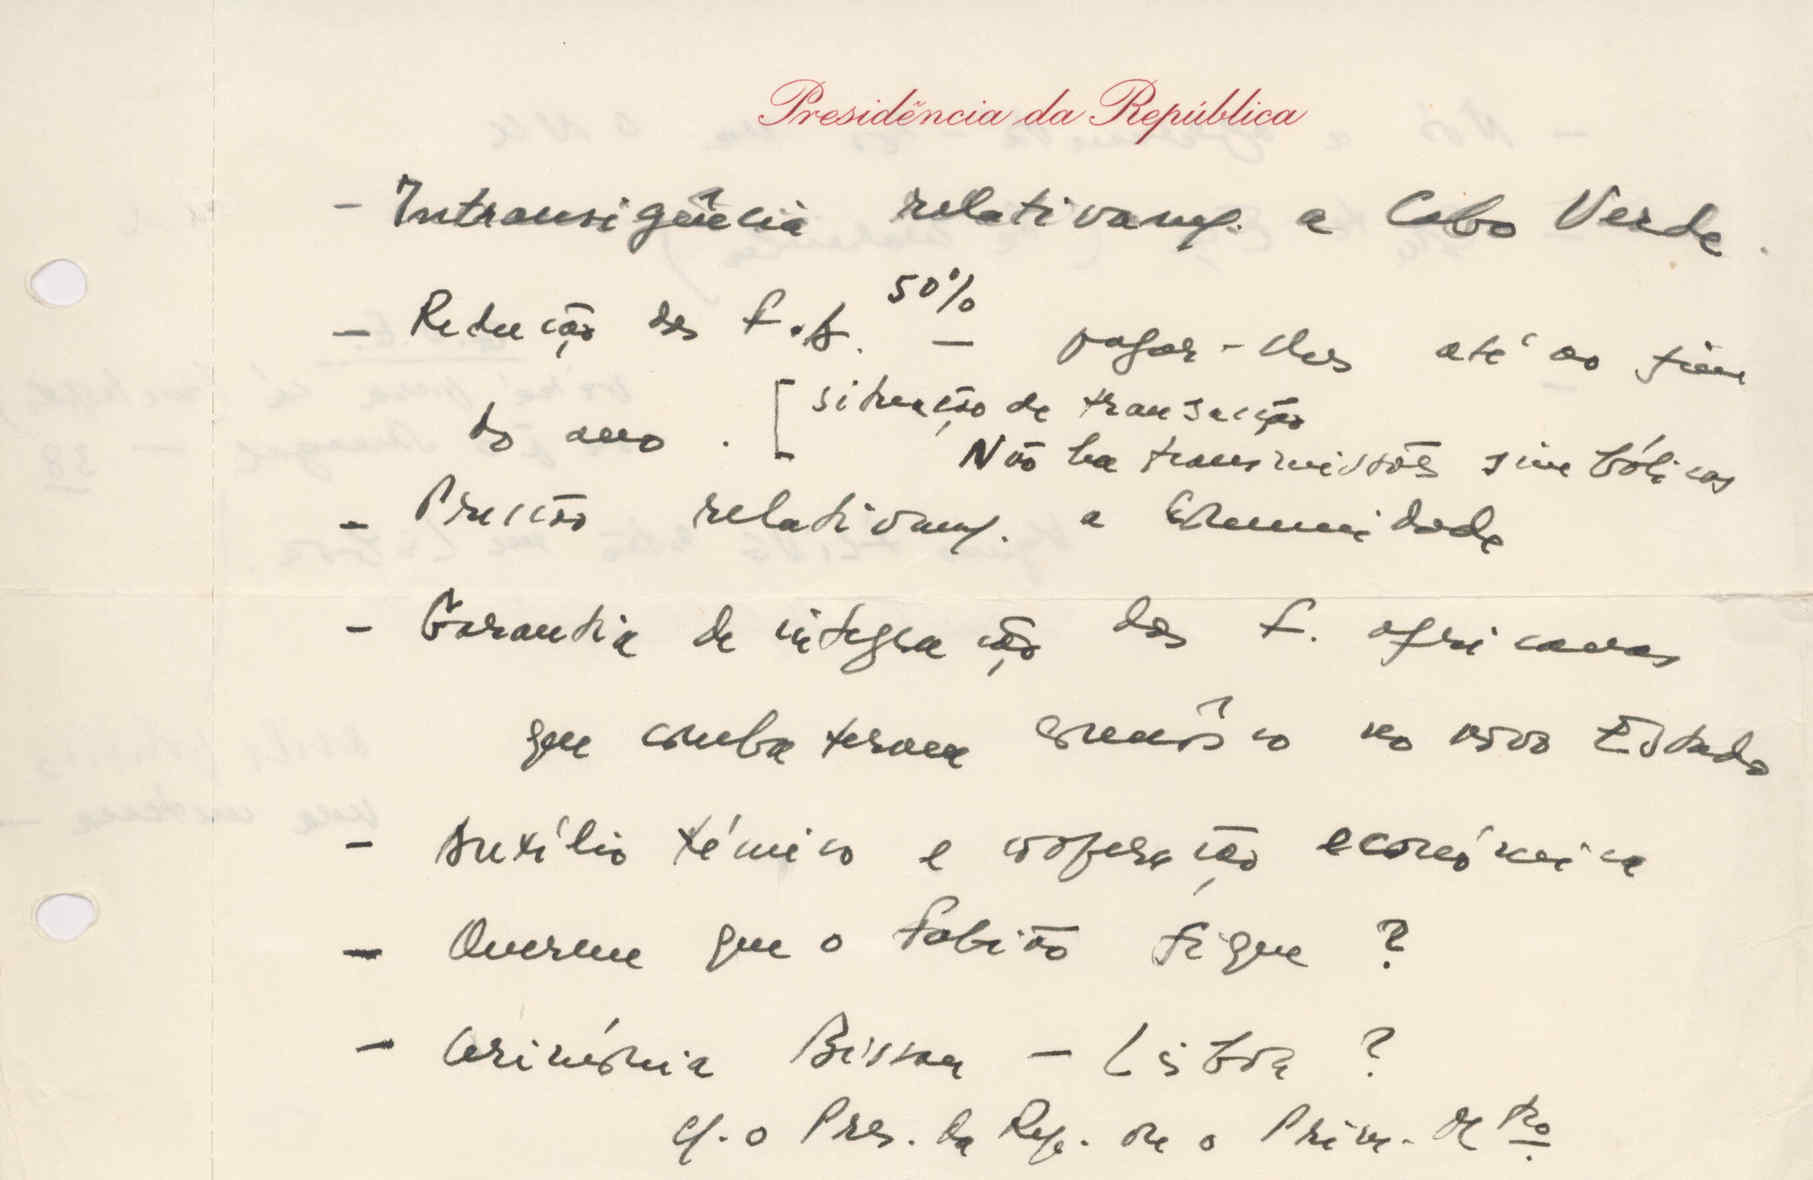 Presidência da República
- Intransigência relativam/. a Cabo Verde.
- Redução das F.A. 50% — pagar-lhes até ao fim
do ano. [ situação de transacção
Não há transmissões simbólicas
- Precisão relativam/. a Comunidade
- Garantia de integração das F. africanas
que combateram connôsco no novo Estado
- Auxílio técnico e cooperação económica
- Querem que o Fabião fique?
- Cerimónia Bissau — Lisboa?
c/. o Pres. da Rep. ou o Prim. M tro.